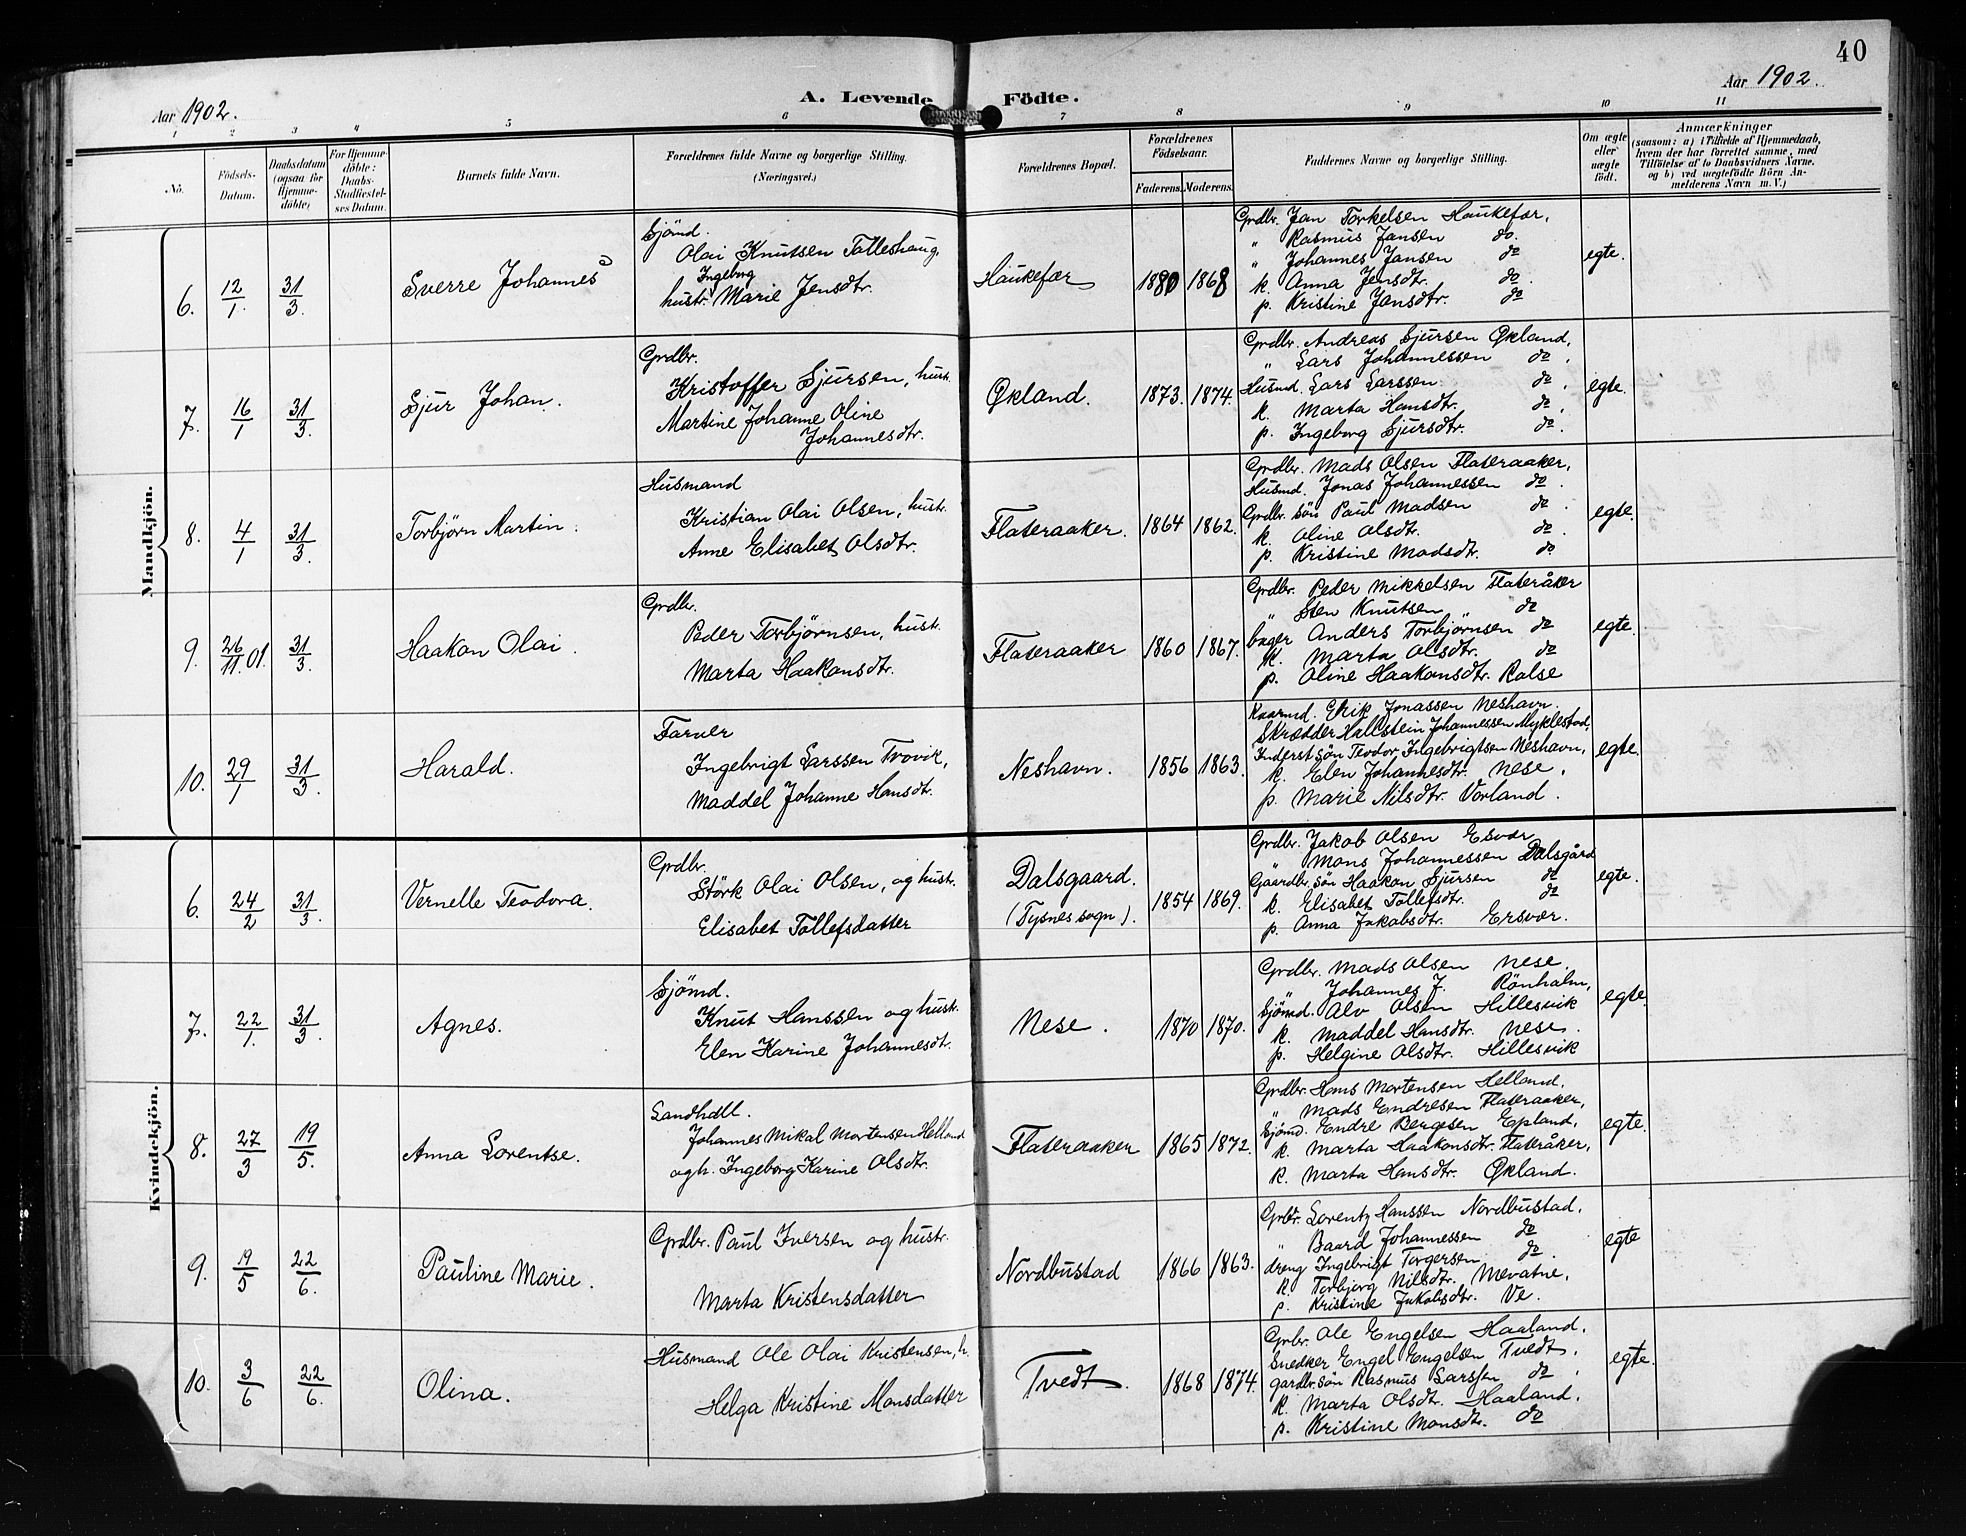 40
Aar 1902.
A. Levende Födte.
Aar 1902.
1 2 3 4 5 6 7 8 9 10 11
Nö.
Födsels-
Datum.
Daabsdatum
(ogsaa for
Hjemme-
döbte)
For Hjemme-
döbte:
Daabs-
Stadfæstel-
ses Datum.
Barnets fulde Navn.
Forældrenes fulde Navne og borgerlige Stilling.
(Næringsvei.)
Forældrenes Bopæl.
Forældrenes
Födselsaar.
Faderens. Moderens.
Faddernes Navne og borgerlige Stilling.
Om ægte
eller
uægte
födt.
Anmærkninger
(saasom: a) i Tilfælde af Hjemmedaab,
hvem der har forrettet samme, med
Tilföielse af to Daabsvidners Navne.
og b) ved uægtefödte Börn An-
melderens Navn m. V.)
Mandkjön.
6.
12/1
31/3.
Sverre Johannes
Sjömd.
Olai Knutsen Tolleshaug,
Ingeborg
hustr. Marie Jensdtr.
Haukefær
1880 1868
Grdbr. Jan Torkelsen Haukefær,
" Rasmus Jansen do.
" Johannes Jansen do
k. Anna Jensdtr. do.
p. Kristine Jansdtr. do
egte.
7.
16/1
31/3.
Sjur Johan.
Grdbr.
Kristoffer Sjursen, hust.
Martine Johanne Oline
Johannesdtr.
Økland.
1873. 1874.
Grdbr. Andreas Sjursen Økland,
" Lars Johannessen do,
Husmd. Lars Larssen do,
k. Marta Hansdtr. do,
p. Ingeborg Sjursdtr. do.
egte.
8.
4/1
31/3
Torbjörn Martin
Husmand
Kristian Olai Olsen, hustr.
Anne Elisabet Olsdtr.
Flateraaker.
1864 1862.
Grdbr. Mads Olsen Flateraaker,
Husmd. Jonas Johannessen do.
Grdbr. sön Paul Madsen do.
k. Oline Olsdtr. do.
p. Kristine Madsdtr. do
egte.
9.
26/11. 01.
31/3.
Haakon Olai.
Grdbr.
Peder Torbjørnsen, hust.
Marta Haakonsdtr.
Flateraaker
1860 1867.
Grdbr. Peder Mikkelsen Flateråker
" Sten Knutsen " do
bager Anders Torbjørnsen do
k. Marta Olsdtr. do
p. Oline Haakonsdtr. Kalse
egte.
10.
29/1
31/3.
Harald.
Farver
Ingebrigt Larssen Trovik,
Maddel Johanne Hansdtr.
Neshavn.
1856 1863.
Kaarmd. Erik Jonassen Neshavn.
Skrædder Hallstein Johannessen Myklestad,
Inderst sön Teodor Ingebrigtsen Neshavn,
k. Elen Johannesdtr. Nese,
p. Marie Nilsdtr. Vorland.
egte.
Kvindekjön.
6.
24/2
31/3.
Vernelle Teodora.
Grdbr.
Störk Olai Olsen, og hust.
Elisabet Tollefsdatter
Dalsgaard.
(Tysnes sogn).
1854 1869.
Grdbr. Jakob Olsen Esvær
" Mons Johannessen Dalsgård
Gaardbr. sön Haakon Sjursen do
k. Elisabet Tollefsdtr. do
p. Anna Jakobsdtr. Ersvær.
egte.
7.
22/1.
31/3.
Agnes.
Sjömd.
Knut Hanssen og hust.
Elen Karine Johannesdtr.
Nese.
1870 1870.
Grdbr. Mads Olsen Nese
" Johannes J. Rönholm,
Sjömd. Alv Olsen Hillesvik
k. Maddel Hansdtr. Nese.
p. Helgine Olsdtr. Hillesvik
egte.
8.
27/3
19/5.
Anna Lorentse.
Landhdl.
Johannes Mikal Mortensen Helland
og h. Ingeborg Karine Olsdtr.
Flateraaker
1865 1872.
Grdbr. Hans Mortensen Helland,
" Mads Endresen Flateraaker,
Sjömd. Endre Bergesen Epland,
k. Marta Haakonsdtr. Flateråker,
k. Marta Hansdtr. Økland.
egte.
9.
19/5
22/6.
Pauline Marie.
Grdbr. Paul Iversen og hustr.
Marta Kristensdatter
Nordbustad
1866 1863.
Grbr. Lorentz Hanssen Nordbustad,
" Baard Johannessen do
dreng Ingebrigt Torgersen do.
k. Torbjørg Nilsdtr. Mevatne,
p. Kristine Jakobsdtr. Ve.
egte
10.
3/6
22/6.
Olina.
Husmand Ole Olai Kristensen, h.
Helga Kristine Monsdatter
Tvedt.
1868 1874.
Grbr. Ole Engelsen Haaland,
Snedker Engel Engelsen Tvedt,
gardbr. sön Rasmus Larssen do,
k. Marta Olsdtr. Haaland,
p. Kristine Monsdtr. do
egte.